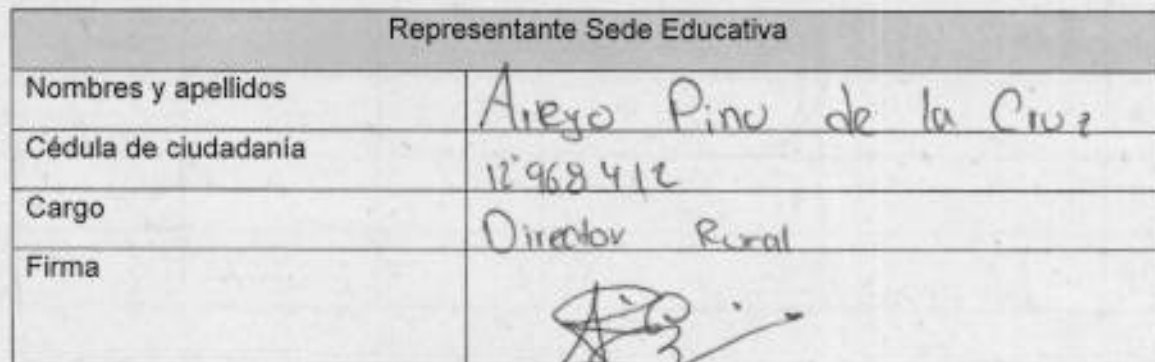 Representante Sede Educativa
Nombres y apellidos Areyo Pino de la Cruz
Cédula de ciudadanía 12'968412
Cargo Director Rural
Firma